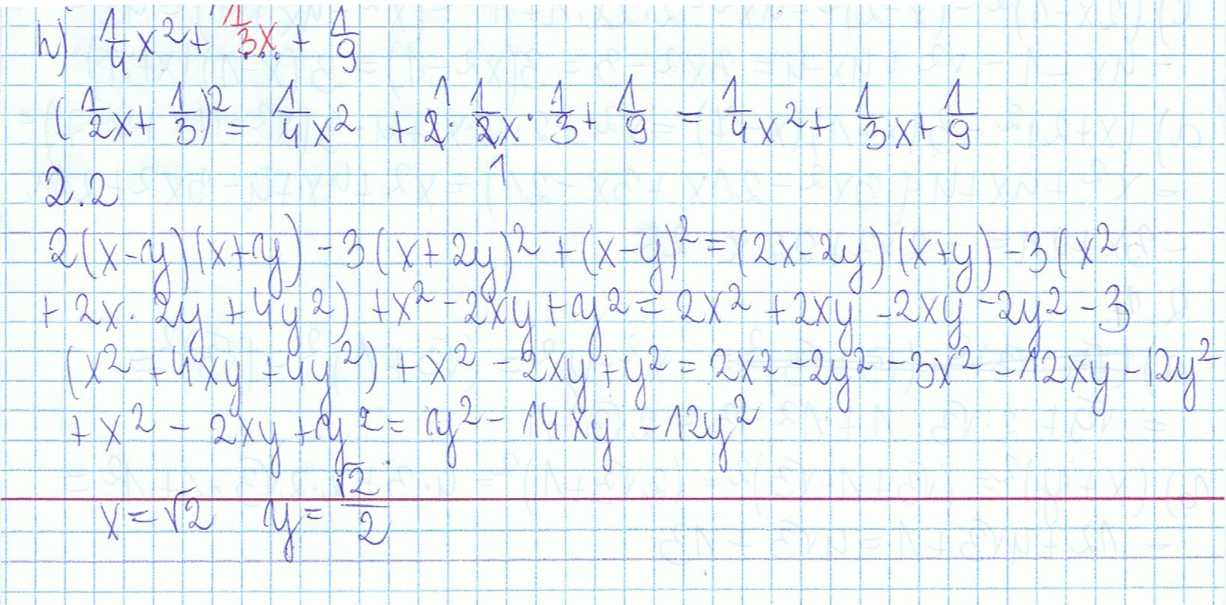 h) 1/4 x² + 1/3 x + 1/9
(1/2 x + 1/3)² = 1/4 x² + 2 · 1/2 x · 1/3 + 1/9 = 1/4 x² + 1/3 x + 1/9
1 1
2.2
2(x-y)(x+y) - 3(x+2y)² + (x-y)² = (2x-2y)(x+y) - 3(x²
+ 2x · 2y + 4y²) + x² - 2xy + y² = 2x² + 2xy - 2xy - 2y² - 3
(x² + 4xy + 4y²) + x² - 2xy + y² = 2x² - 2y² - 3x² - 12xy - 12y²
+ x² - 2xy + y² = y² - 14xy - 12y²
x = √2 y = √2/2